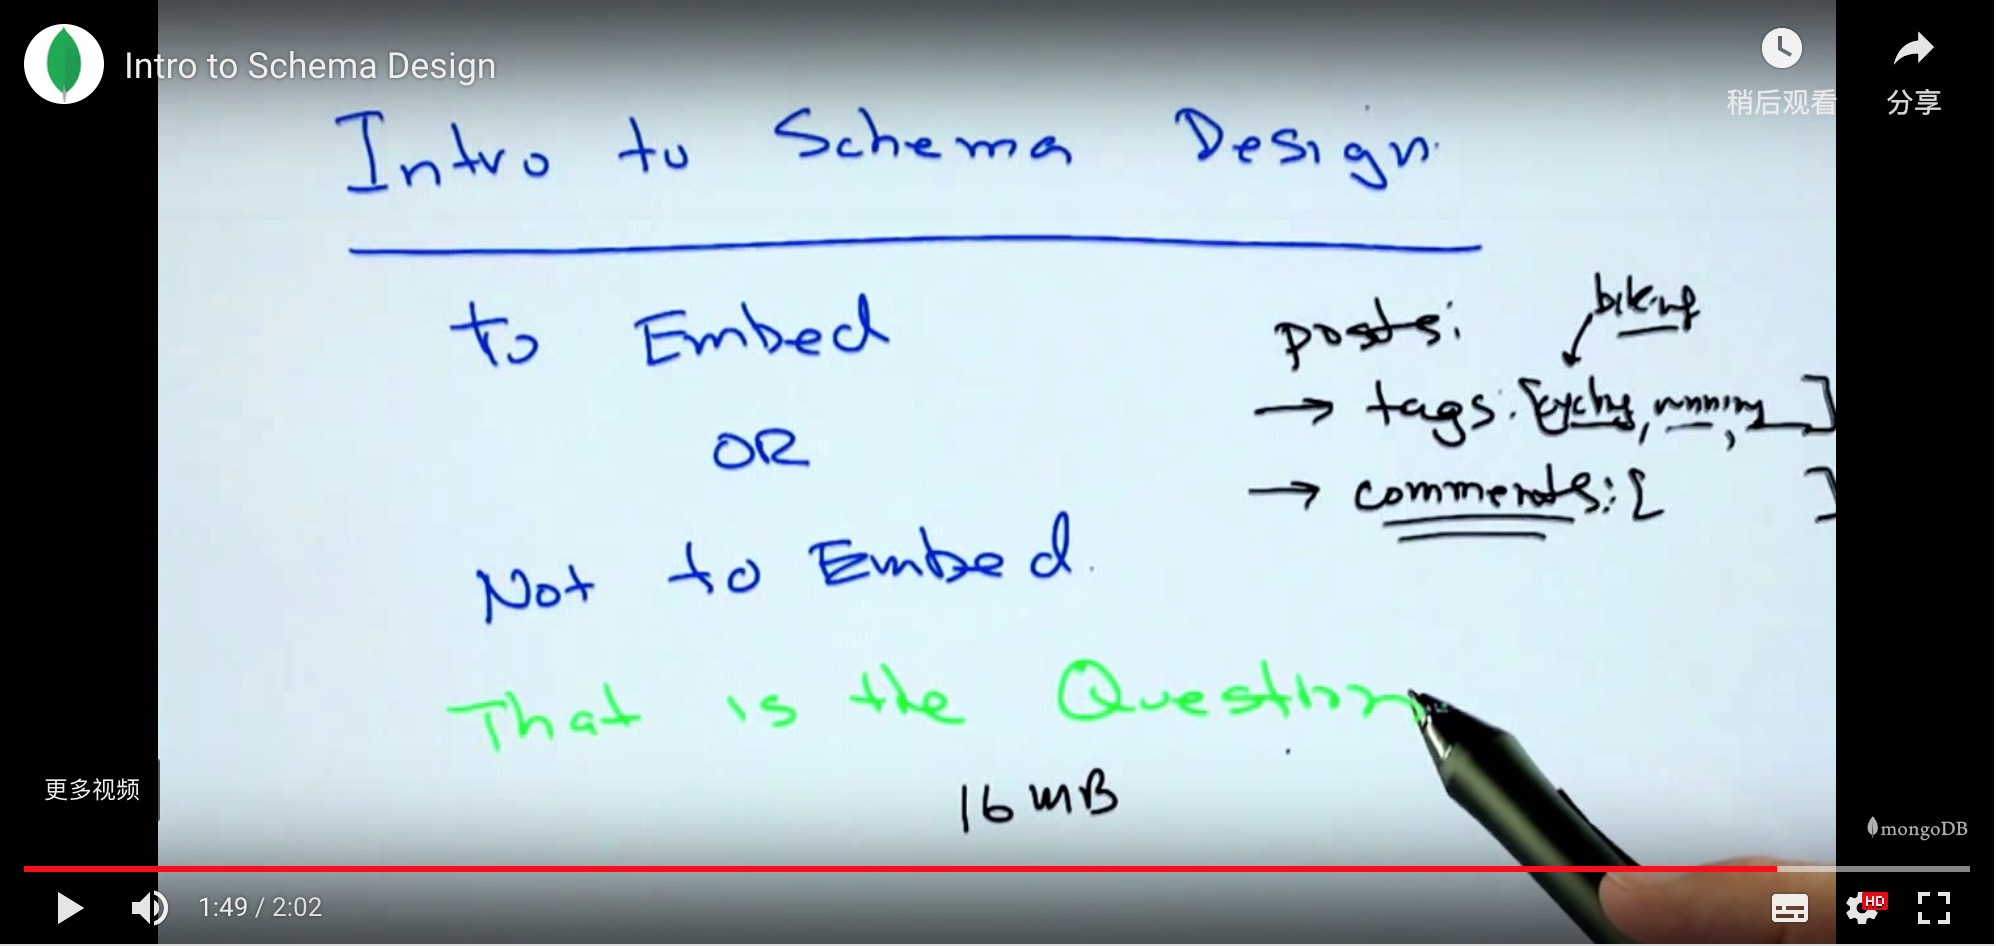 Intro to Schema Design
稍后观看
分享
Intro to Schema Design
to Embed
OR
Not to Embed.
That is the Question
16 MB
biking
posts:
→ tags: [cycling, running, ]
→ comments: [ ]
更多视频
mongoDB
1:49 / 2:02
HD